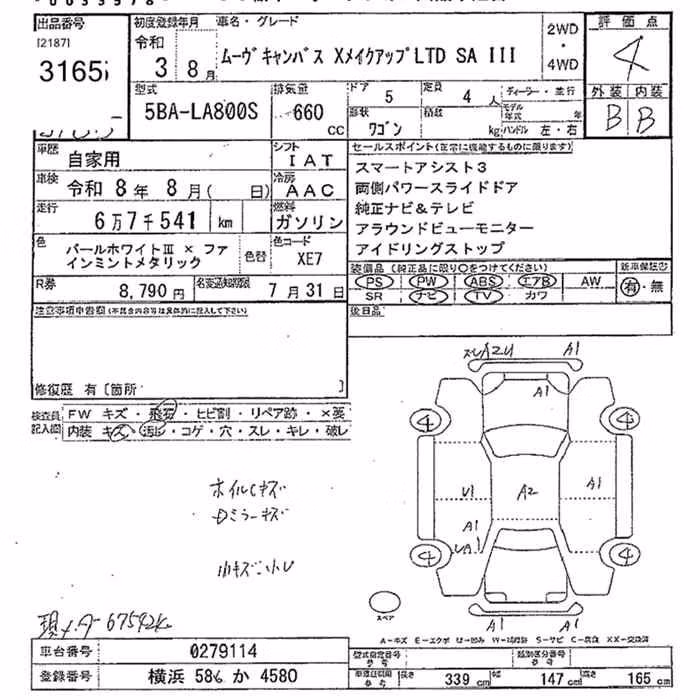 出品番号
[2187]
3165
初度登録年月
令和
3 8月
車名・グレード
ムーヴキャンバス XメイクアップLTD SA III
2WD
・
4WD
評価点
4
外装 内装
B B
型式
5BA-LA800S
排気量
660
CC
ドア
5
定員
4 人
ディーラー・並行
形状
ワゴン
積載
kg
モデル年式 年
ハンドル 左・右
車歴
自家用
シフト
IAT
車検
令和 8年 8月( 日)
冷房
AAC
走行
6万7千541 km
燃料
ガソリン
色
パールホワイトⅢ × ファインミントメタリック
色替
色コード
XE7
R券
8,790円
名変期限
7月31日
セールスポイント(正常に機能するものに限ります)
スマートアシスト3
両側パワースライドドア
純正ナビ&テレビ
アラウンドビューモニター
アイドリングストップ
装備品 (純正品に限り○をつけてください)
PS PW ABS エアB AW
SR ナビ TV カワ
新車保証書
有・無
注意事項申告欄
後日品
修復歴 有 [箇所 ]
検査員記入欄
FW キズ・飛石・ヒビ割・リペア跡・×要
内装 キズ・汚れ・コゲ・穴・スレ・キレ・破レ
A1
A1
4 4
U1
A2
A1
A1
4 4
A1 A1
ホイルCキズ
Dミラーキズ
小キズ
現メーター 67542k
スペア
A-キズ E-エクボ U-凹み W-補修跡 S-サビ C-腐食 XX-交換済
車台番号
0279114
登録番号
横浜 586 か 4580
型式指定番号
参考
類別区分番号
参考
長さ 339 cm
幅 147 cm
高さ 165 cm